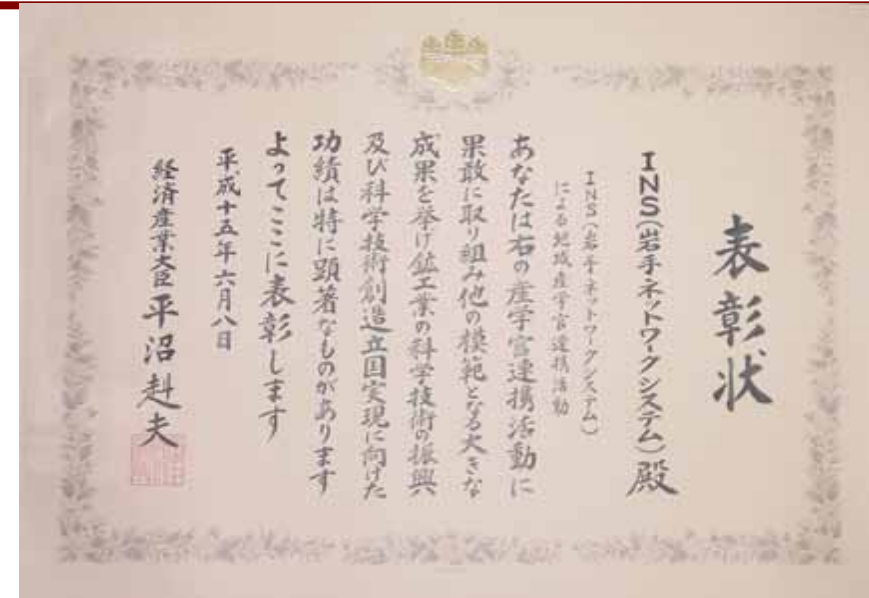 表彰状
INS(岩手ネットワークシステム)殿
INS(岩手ネットワークシステム)
による地域産学官連携活動
あなたは右の産学官連携活動に
果敢に取り組み他の模範となる大きな
成果を挙げ鉱工業の科学技術の振興
及び科学技術創造立国実現に向けた
功績は特に顕著なものがあります
よってここに表彰します
平成十五年六月八日
経済産業大臣 平沼赳夫